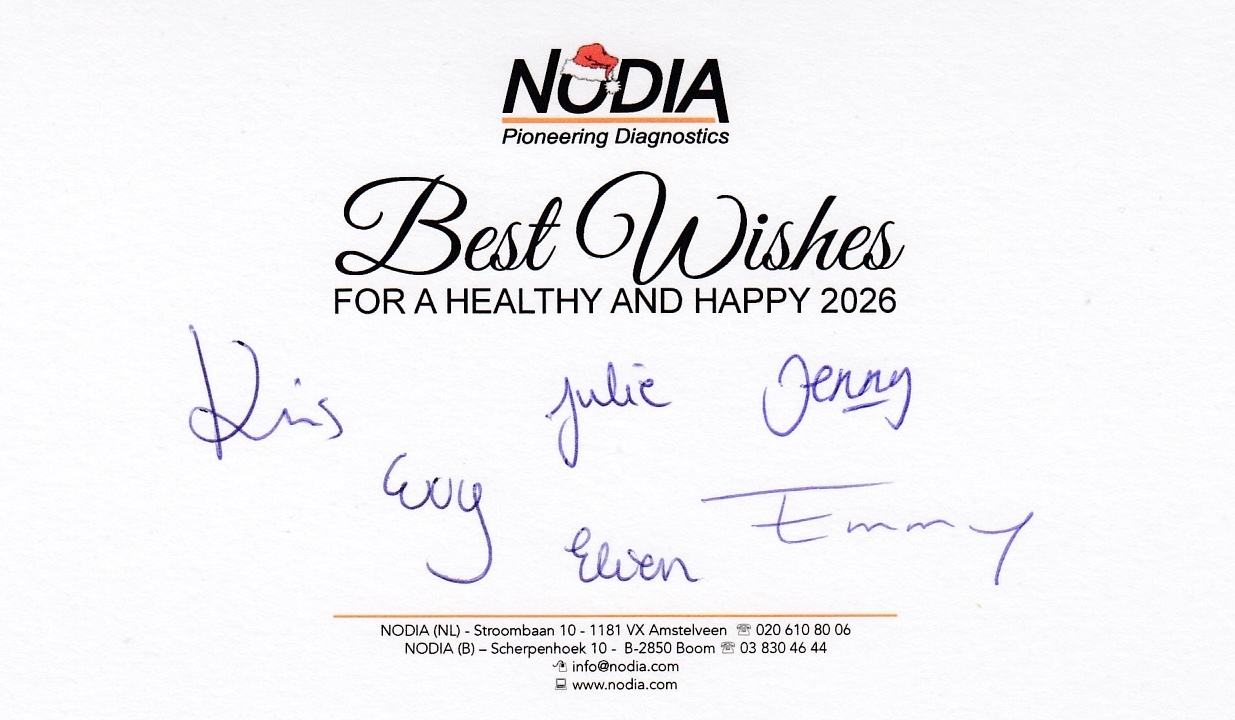 NODIA
Pioneering Diagnostics
Best Wishes
FOR A HEALTHY AND HAPPY 2026
Kris Julie Jenny
Evy Emmy
NODIA (NL) - Stroombaan 10 - 1181 VX Amstelveen ☏ 020 610 80 06
NODIA (B) – Scherpenhoek 10 - B-2850 Boom ☏ 03 830 46 44
info@nodia.com
www.nodia.com